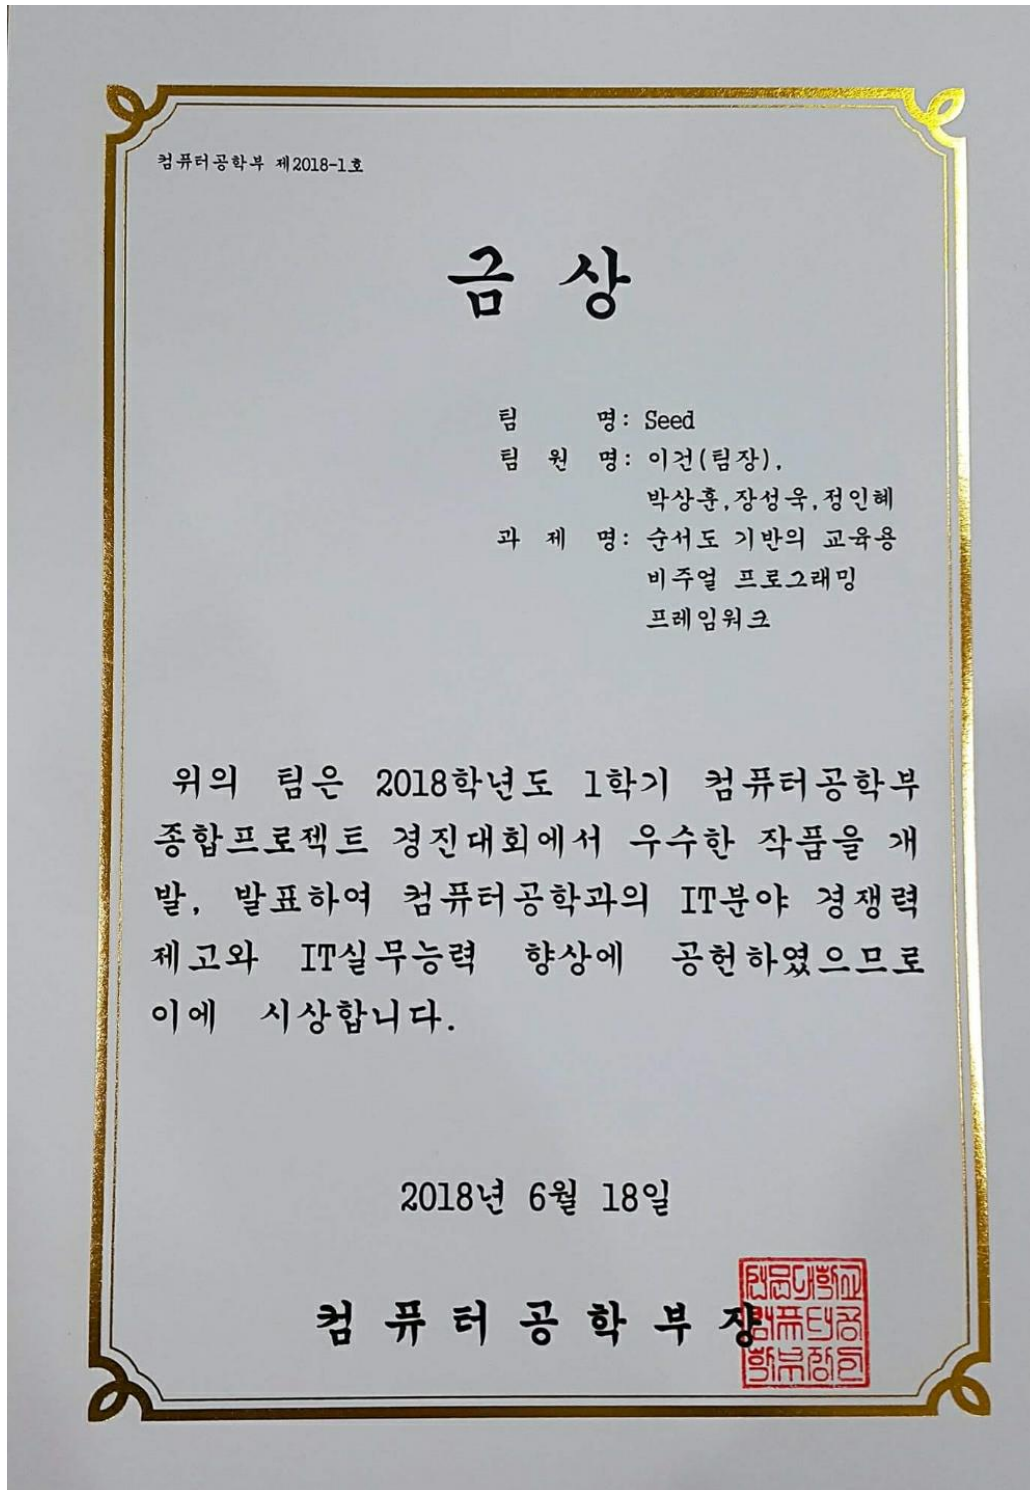 컴퓨터공학부 제2018-1호
금 상
팀 명: Seed
팀 원 명: 이건(팀장),
박상훈,장성욱,정인혜
과 제 명: 순서도 기반의 교육용
비주얼 프로그래밍
프레임워크
위의 팀은 2018학년도 1학기 컴퓨터공학부
종합프로젝트 경진대회에서 우수한 작품을 개
발, 발표하여 컴퓨터공학과의 IT분야 경쟁력
제고와 IT실무능력 향상에 공헌하였으므로
이에 시상합니다.
2018년 6월 18일
컴 퓨 터 공 학 부 장